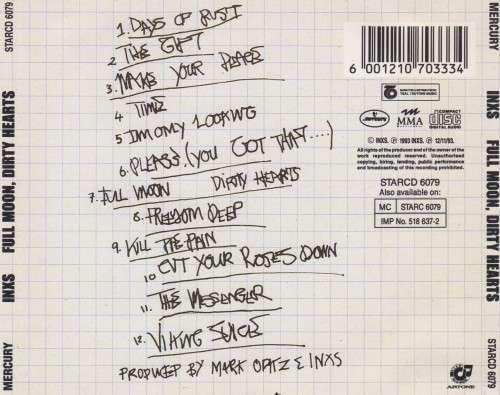 STARCD 6079
INXS FULL MOON, DIRTY HEARTS
MERCURY
1. DAYS OF RUST
2 THE GIFT
3. MAKE YOUR PEACE
4 TIME
5 IM ONLY LOOKING
6. PLEASE (YOU GOT THAT....)
7. FULL MOON DIRTY HEARTS
8. FREEDOM DEEP
9. KILL THE PAIN
10 CUT YOUR ROSES DOWN
11. THE MESSENGER
12. VIKING JUICE
PRODUCED BY MARK OPITZ & INXS
6 001210 703334
TEAL TRUTONE MUSIC
mercury
MMA
COMPACT
disc
DIGITAL AUDIO
© INXS. ℗ 1993 INXS. ℗ 12/11/93.
All rights of the producer and of the owner of the
work reproduced reserved. Unauthorised
copying, hiring, lending, public performance
and broadcasting of this recording prohibited.
STARCD 6079
Also available on:
MC STARC 6079
IMP No. 518 637-2
ARTONE
MERCURY
INXS FULL MOON, DIRTY HEARTS
STARCD 6079